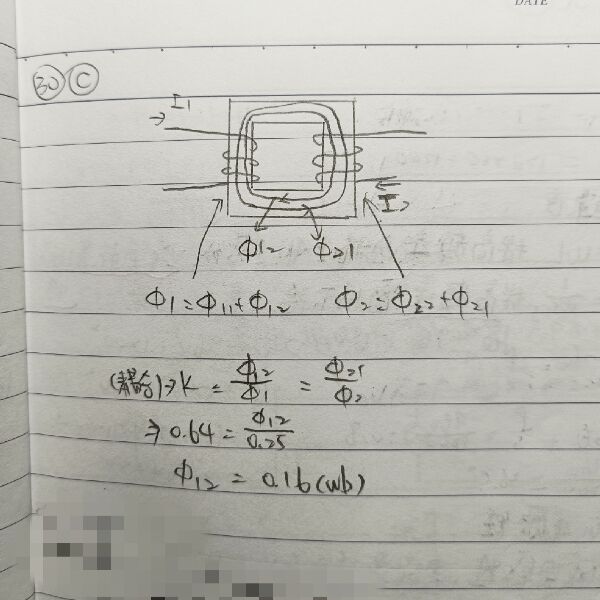 DATE
30 C
I1
I2
Φ12 Φ21
Φ1=Φ11+Φ12 Φ2=Φ22+Φ21
⇒K = Φ12/Φ1 = Φ21/Φ2
⇒0.64 = Φ12/0.25
Φ12 = 0.16(wb)